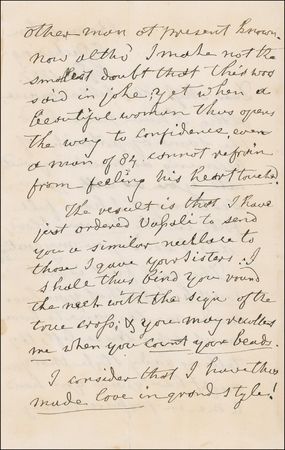 other man at present known.
now altho' I make not the
smallest doubt that this was
said in joke; yet when a
beautiful woman thus opens
the way to confidence, even
a man of 84 cannot refrain
from feeling his heart touched.
The result is that I have
just ordered Vassali to send
you a similar necklace to
those I gave your Sisters. I
shall thus bind you round
the neck with the sign of the
true cross; & you may recollect
me when you count your beads.
I consider that I have thus
made love in grand style!